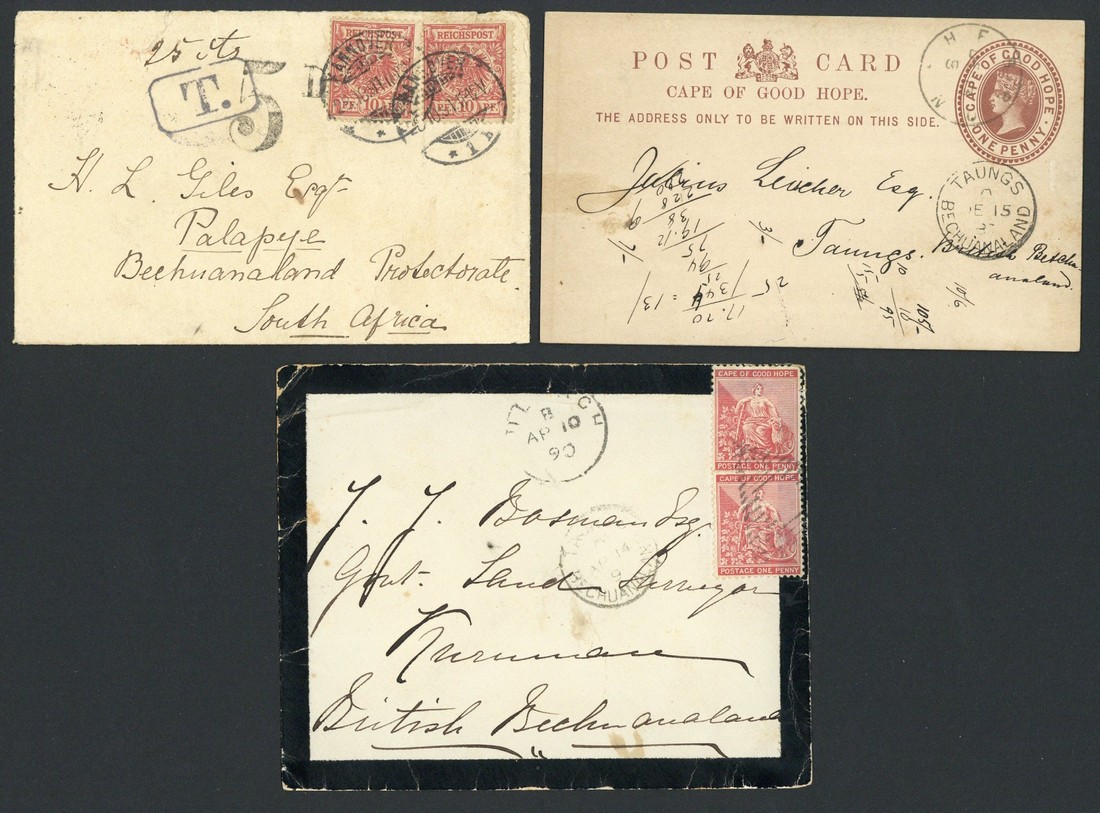 25 cts
T.
5 D
REICHSPOST REICHSPOST
HANNOVER
PF. 10 PF. PF. 10 PF.
* 1
H. L. Giles Esqr
Palapye
Bechuanaland Protectorate.
South Africa
POST CARD
CAPE OF GOOD HOPE.
THE ADDRESS ONLY TO BE WRITTEN ON THIS SIDE.
CAPE OF GOOD HOPE
ONE PENNY
TAUNGS
C
DE 15
BECHUANALAND
Julius Leicher Esq.
Taungs. British Betchu-
analand.
228
38
19.12
7/-
75
94
25
344
17.70
= 13/
25
3/-
10
15
95
10
105/-
10/6
B
AP 10
90
CAPE OF GOOD HOPE
POSTAGE ONE PENNY
CAPE OF GOOD HOPE
POSTAGE ONE PENNY
AP 14
9
BECHUANA
J. J. Bosman Esq.
Govt. Land Surveyor
Kuruman
British Bechuanaland